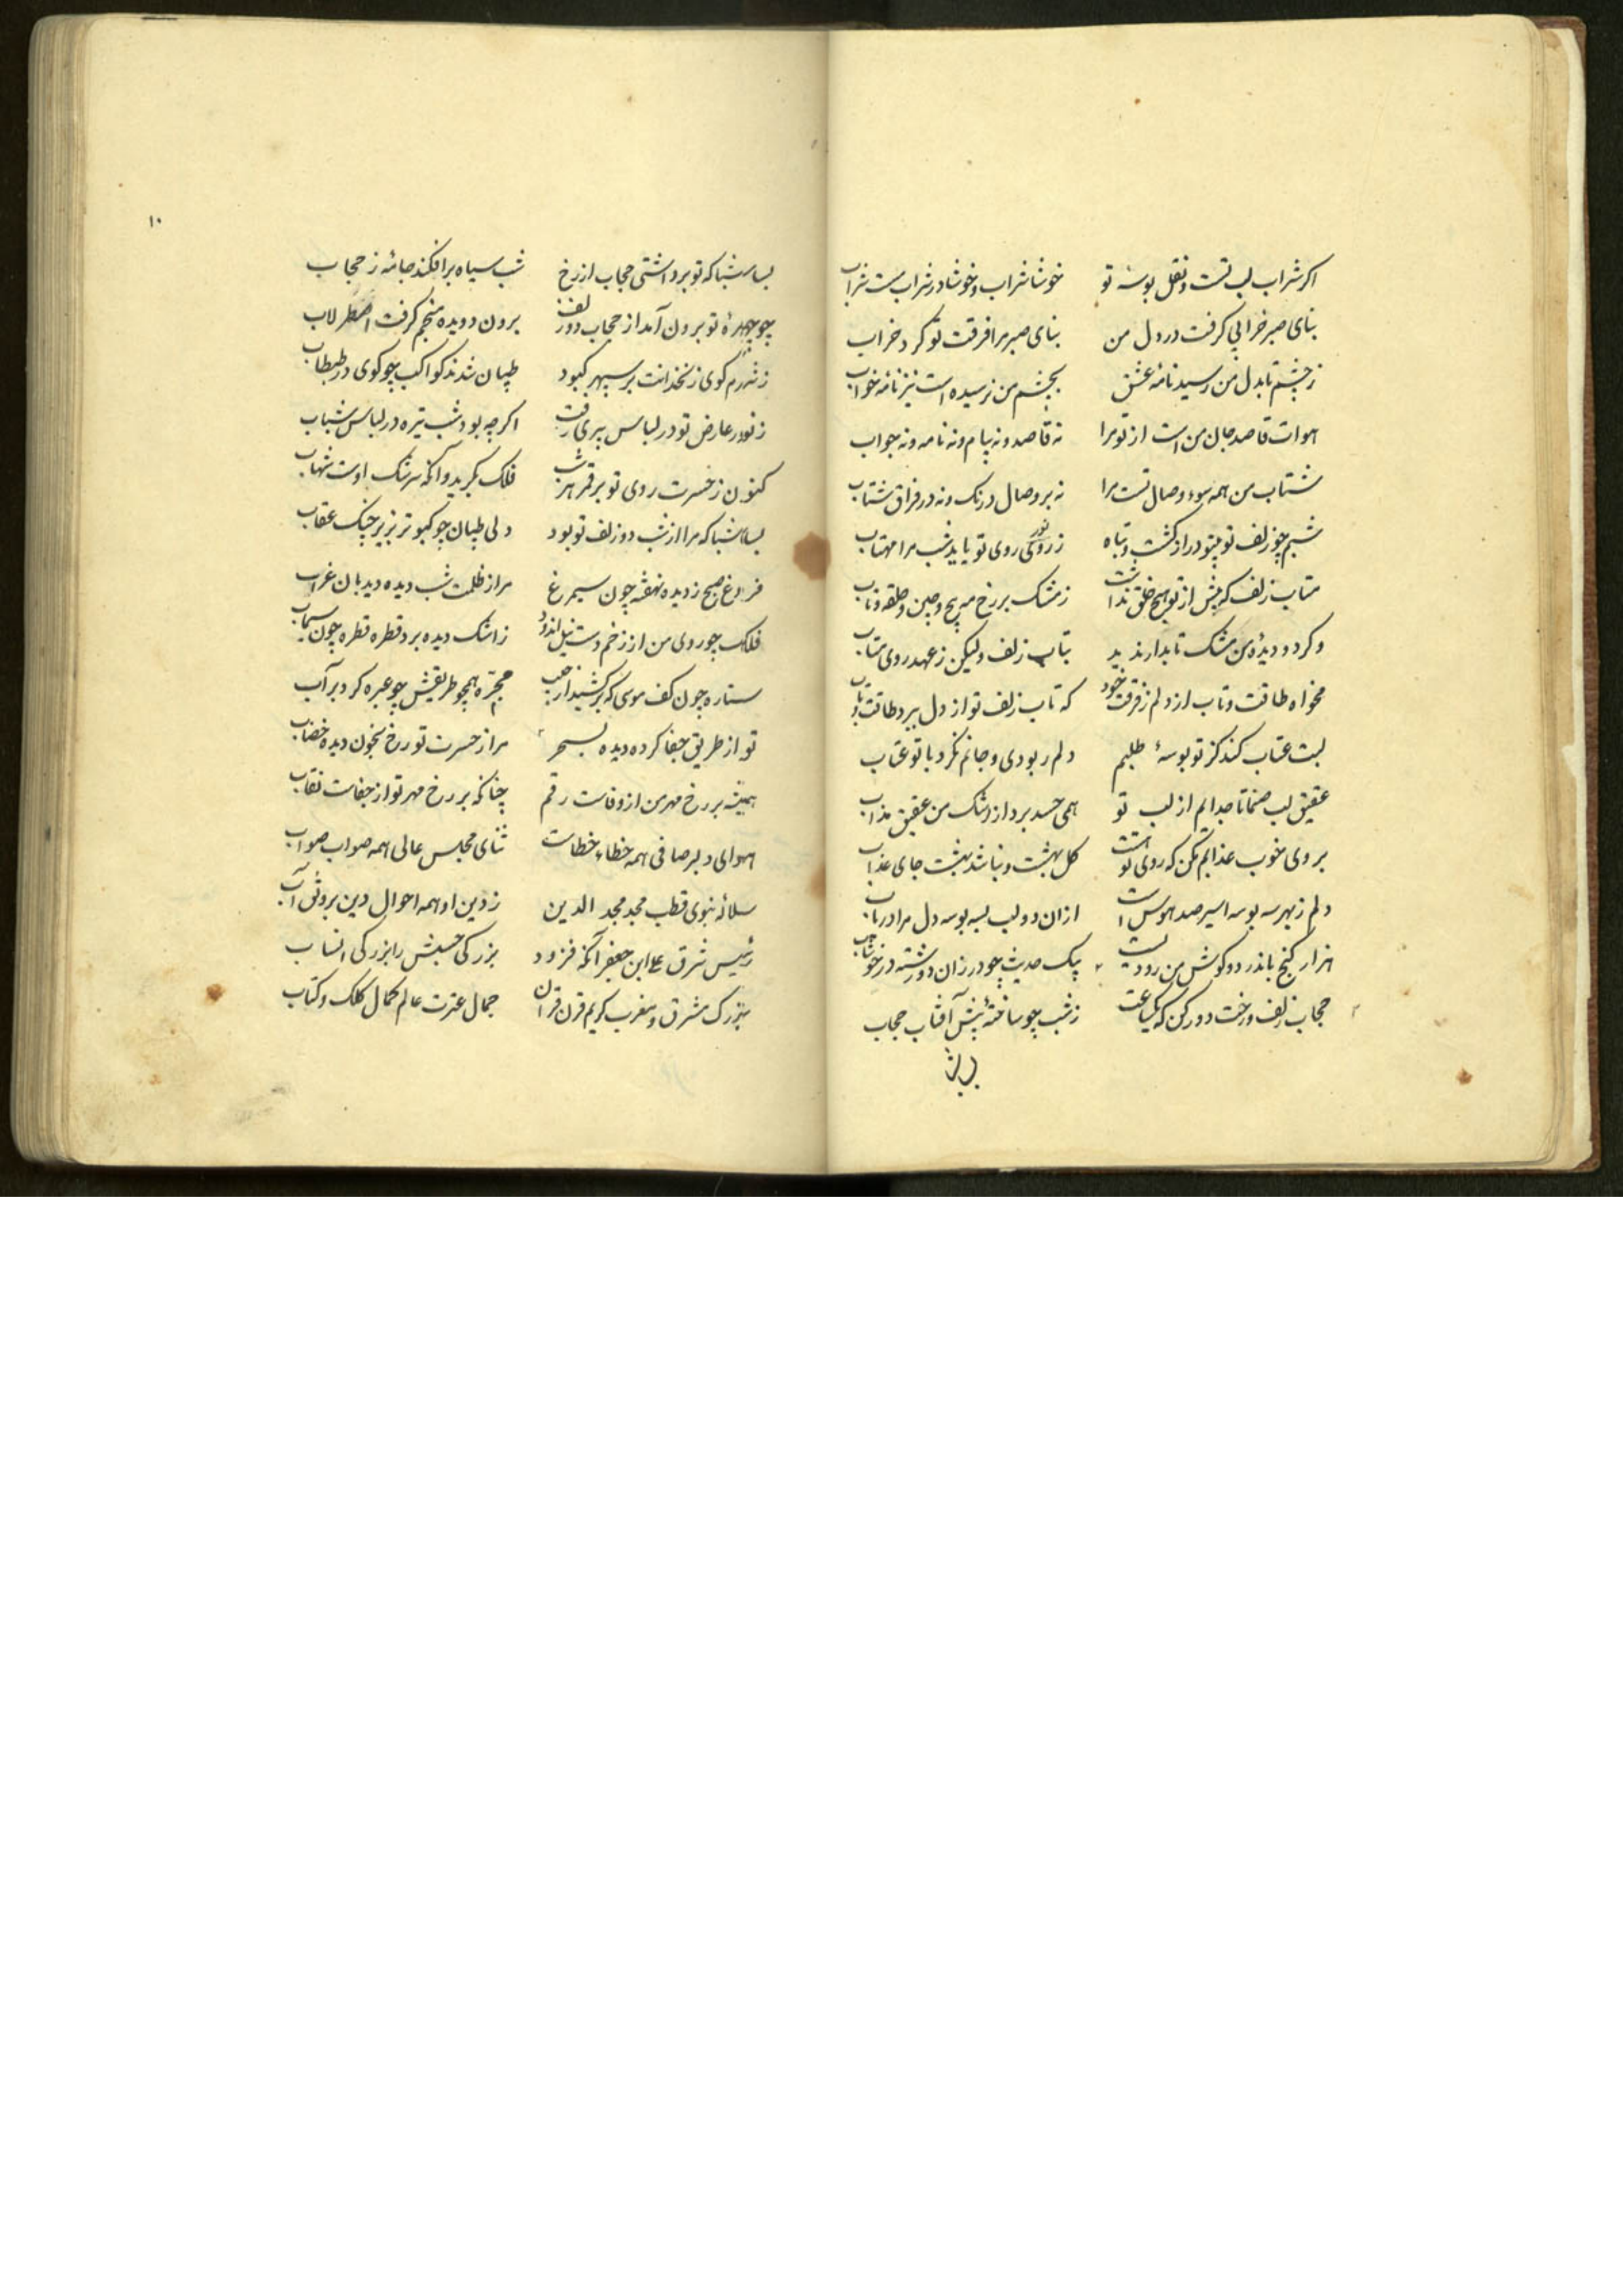 اکر شراب لب تست و نقل بوسهٔ تو خوشا شراب و خوشا در شراب مست شراب
بنای صبر خرابی کرفت در دل من بنای صبر مرا فرقت تو کرد خراب
ز چشم تا بدل من رسید نامهٔ عشق بچشم من نرسیده است نیز نامهٔ خواب
هوات قاصد جان من است از تو مرا نه قاصد و نه پیام و نه نامه و نه جواب
شتاب من همه سوء وصال تست مرا نه بر وصال درنک و نه در فراق شتاب
شبم چو زلف تو بیتو دراز کشت و تباه ز روی تو باید شب مرا مهتاب
متاب زلف که پیش از تو هیچ خلق نداشت ز مشک بر رخ مه پیچ و چین و حلقه و تاب
وکر دو دیدهٔ من مشک تابدار ندید بتاب زلف ولیکن ز عهد روی متاب
مخواه طاقت و تاب از دلم ز فرقت خود که تاب زلف تو از دل ببرد طاقت و تاب
لبت عتاب کند کز تو بوسهٔ طلبم دلم ربودی و جانم نکرد با تو عتاب
عقیق لب صنما تا جدایم از لب تو همی حسد برد از اشک من عقیق مذاب
بروی خوب عذابم مکن که روی تو است کل بهشت و نباشد بهشت جای عذاب
دلم ز بهر سه بوسه اسیر صد هوس است ازان دو لب بسه بوسه دل مرا دریاب
هزار کنج باندر دو کوش من رودیست بیک حدیث چو در زان دو رشته در خوشاب
حجاب زلف ز رخت دور کن که یکساعت ز شب چو ساختهٔ پیش آفتاب حجاب
بسا
۱۰
بسا شبا که تو برداشتی حجاب از رخ شب سیاه برافکند جامه ز حجاب
چو چهرهٔ تو برون آمد از حجاب دو زلف برون دویده منجم کرفت اصطرلاب
ز شرم کوی زنخدانت بر سپهر کبود طپان شدند کواکب چو کوی در طبطاب
ز نور عارض تو در لباس پیری رفت اکرچه بود شب تیره در لباس شباب
کنون ز حسرت روی تو بر قمر هر شب فلک بکرید وانکه سرشک اوست شهاب
بسا شبا که مرا از شب دو زلف تو بود دلی طپان چو کبوتر بزیر چنک عقاب
فروغ صبح ز دیده نهفته چون سیمرغ مرا ز ظلمت شب دیده دیدبان غراب
فلک چو روی من از زخم دست نیل اندود ز اشک دیده برو قطره قطره چون سیماب
ستاره چون کف موسی که برکشید از جیب مجره همچو طریقش چو عبره کرد بر آب
تو از طریق جفا کرده دیده بسحر مرا ز حسرت تو رخ بخون دیده خضاب
همیشه بر رخ مهر من از وفاست رقم چنانکه بر رخ مهر تو از جفاست نقاب
هوای دلبر صافی همه خطاء خطاست ثنای مجلس عالی همه صواب صواب
سلالهٔ نبوی قطب مجد مجد الدین ز دین او همه احوال دین برونق و آب
رئیس شرق علی ابن جعفر آنکه فزود بزرکی حسبش را بزرکی انساب
بزرک مشرق و مغرب کریم قرن قران جمال عترت عالم کمال کلک و کتاب